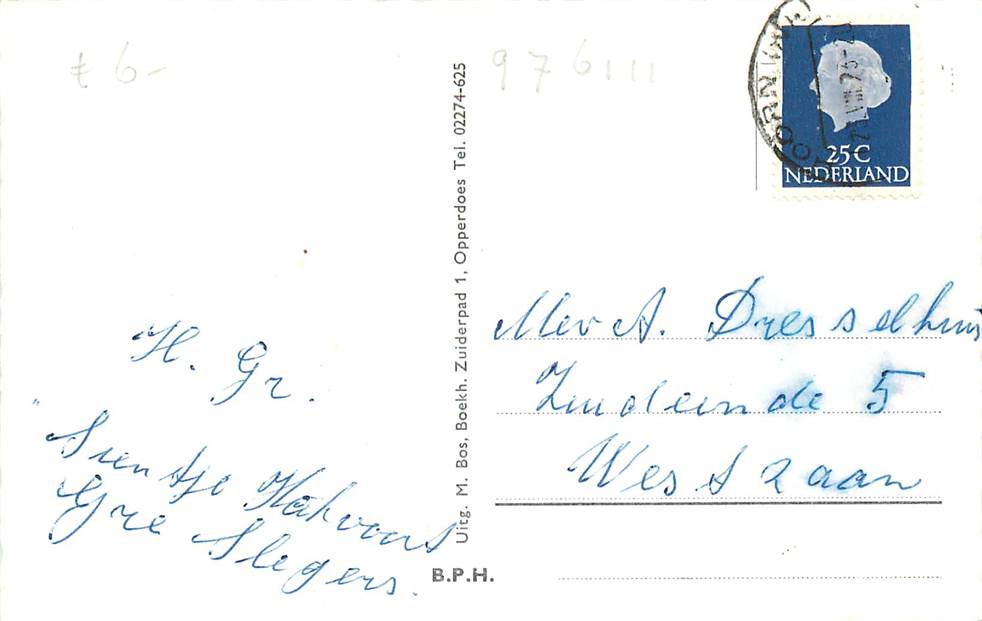 € 6-
976111
25 C
NEDERLAND
Uitg. M. Bos, Boekh. Zuiderpad 1, Opperdoes Tel. 02274-625
H. Gr.
Sientje
Gre Slegers.
Mev A. Dresselhuis
Zuideinde 5
Westzaan
B.P.H.